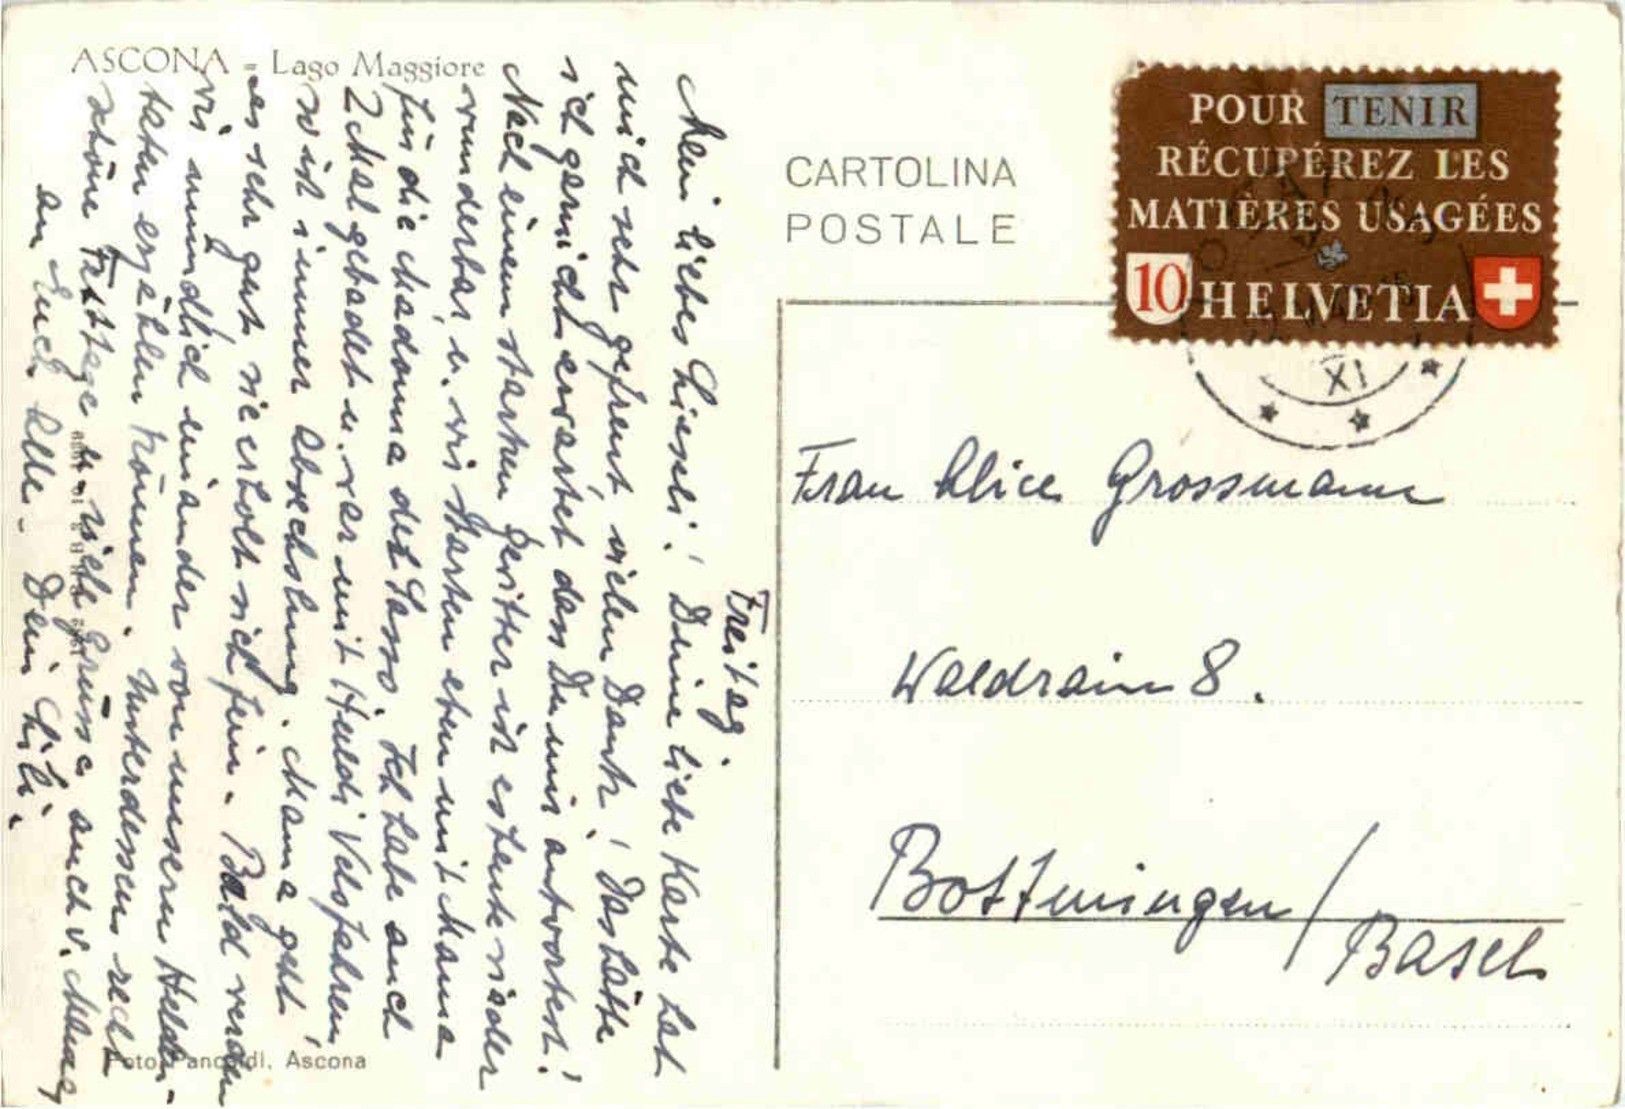 ASCONA - Lago Maggiore
CARTOLINA
POSTALE
POUR TENIR
RÉCUPÉREZ LES
MATIÈRES USAGÉES
10 HELVETIA
XI
Freitag.
Mein liebes Lieseli! Deine liebe Karte hat
mich sehr gefreut vielen Dank! Das hätte
ich garnicht erwartet dass Du mir antwortest!
Nach einem starken Gewitter ist es heute wieder
wunderbar, u. wir starten eben mit Mama
für die Madonna del Sasso. Ich habe auch
2 Mal gebadet u. war mit Heidi Velofahren
so ist immer Abwechslung. Mama geht
es sehr gut sie erholt sich fein. Bald werden
wir mündlich einander von unsern Helden-
taten erzählen können. Unterdessen recht
schöne Festtage u. viele Grüsse auch v. Mama
an Euch Alle. Dein Lili.
Foto Pancaldi, Ascona
Frau Alice Grossmann
Waldrain 8.
Bottmingen/
Basel